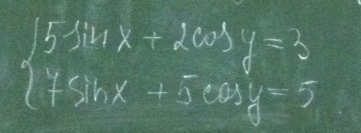 5 sin x + 2 cos y = 3
7 sin x + 5 cos y = 5